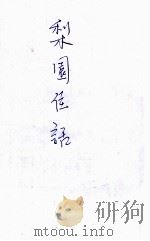 梨園佳話
研狗
mtoou.info